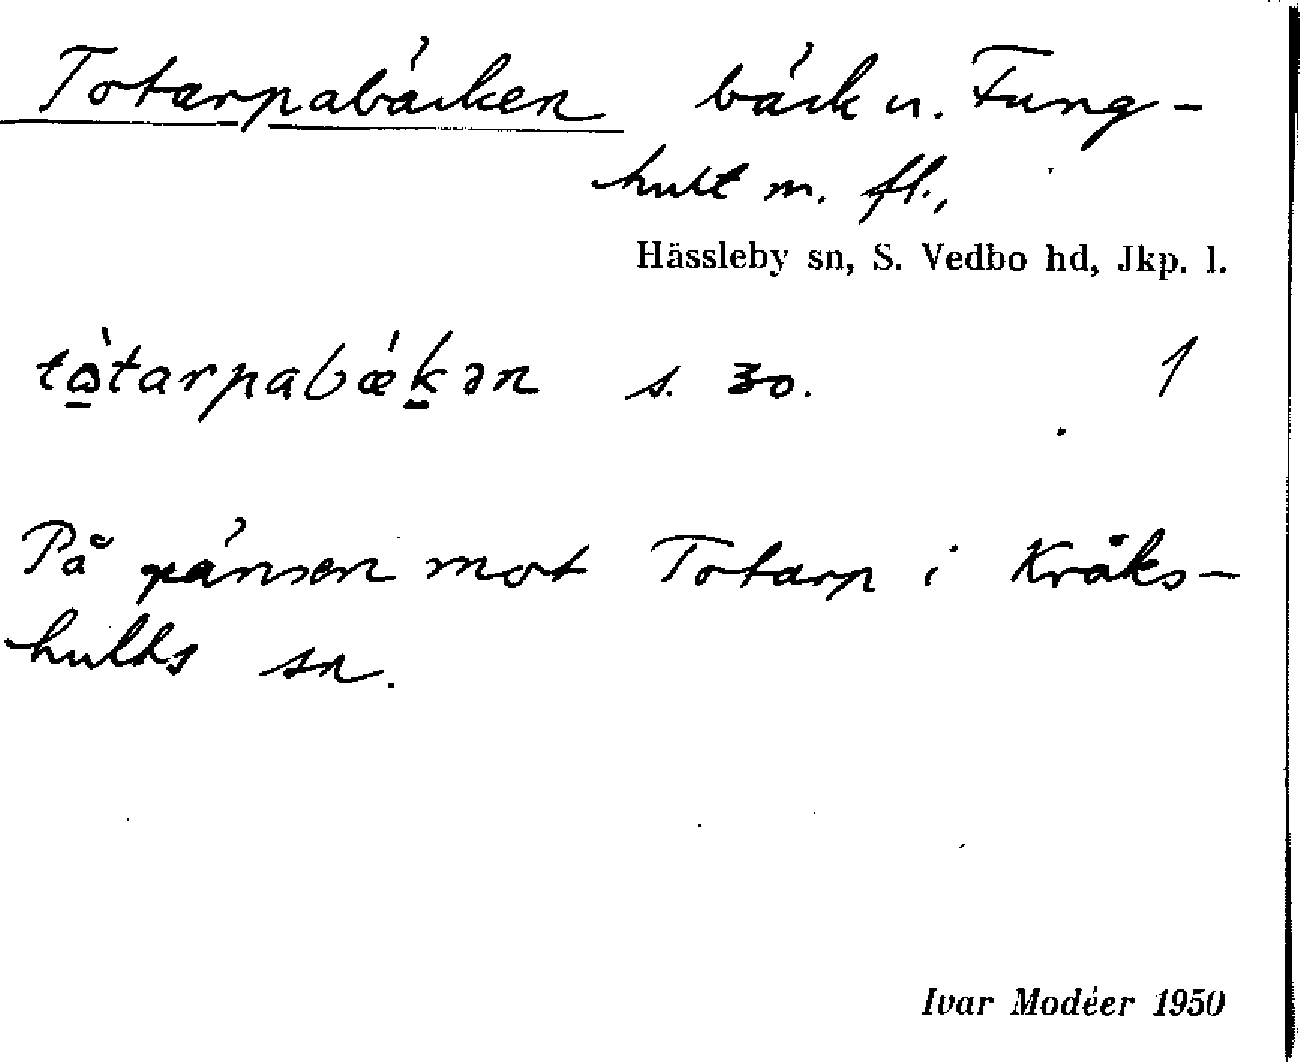 Totarpabäcken bäck u. Fung-
hult m. fl.,
Hässleby sn, S. Vedbo hd, Jkp. l.
tọ̀tarpabǽḵən s. 30. 1
På gränsen mot Totarp i Kråks-
hults sn.
Ivar Modéer 1950